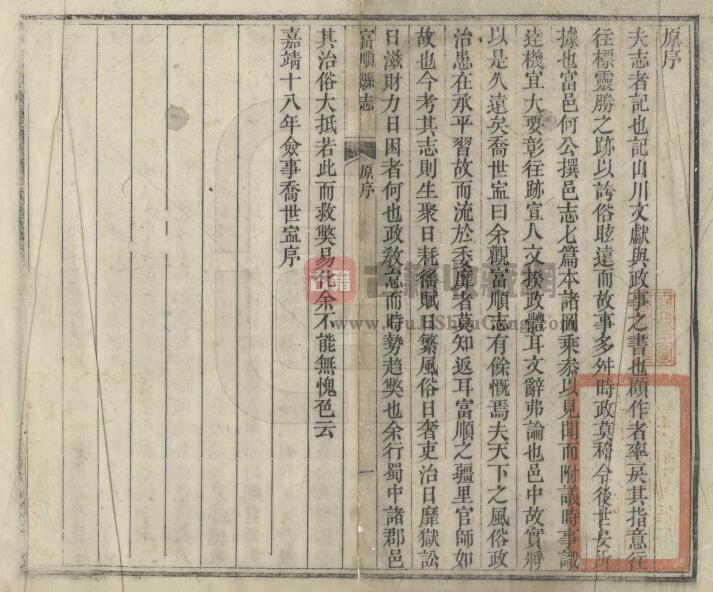 原序
夫志者記也記山川文獻與政事之書也顧作者率戾其指意往
往標靈勝之跡以誇俗眩遠而故事多舛時政莫稽令後世安所
據也富邑何公撰邑志七篇本諸圖乘叅以見聞而附議時事識
達機宜大要彰往跡宣人文揆政體耳文辭弗論也邑中故實將
以是久遠矣喬世寍曰余觀富順志有餘慨焉夫天下之風俗政
治患在承平習故而流於委靡者莫知返耳富順之疆里官師如
故也今考其志則生聚日耗徭賦日繁風俗日奢吏治日靡獄訟
日滋財力日困者何也政敎怠而時勢趋獘也余行蜀中諸郡邑
富順縣志
原序
一
其治俗大抵若此而救獘易化余不能無愧色云
嘉靖十八年僉事喬世寍序
古籍
古籍收藏网
www.GuJiShouCang.com